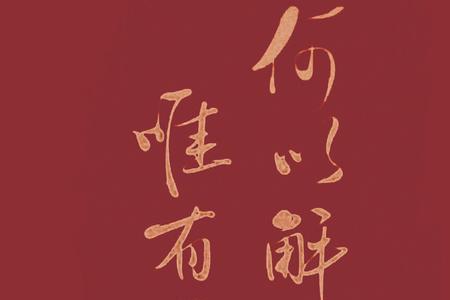 何以解
唯有